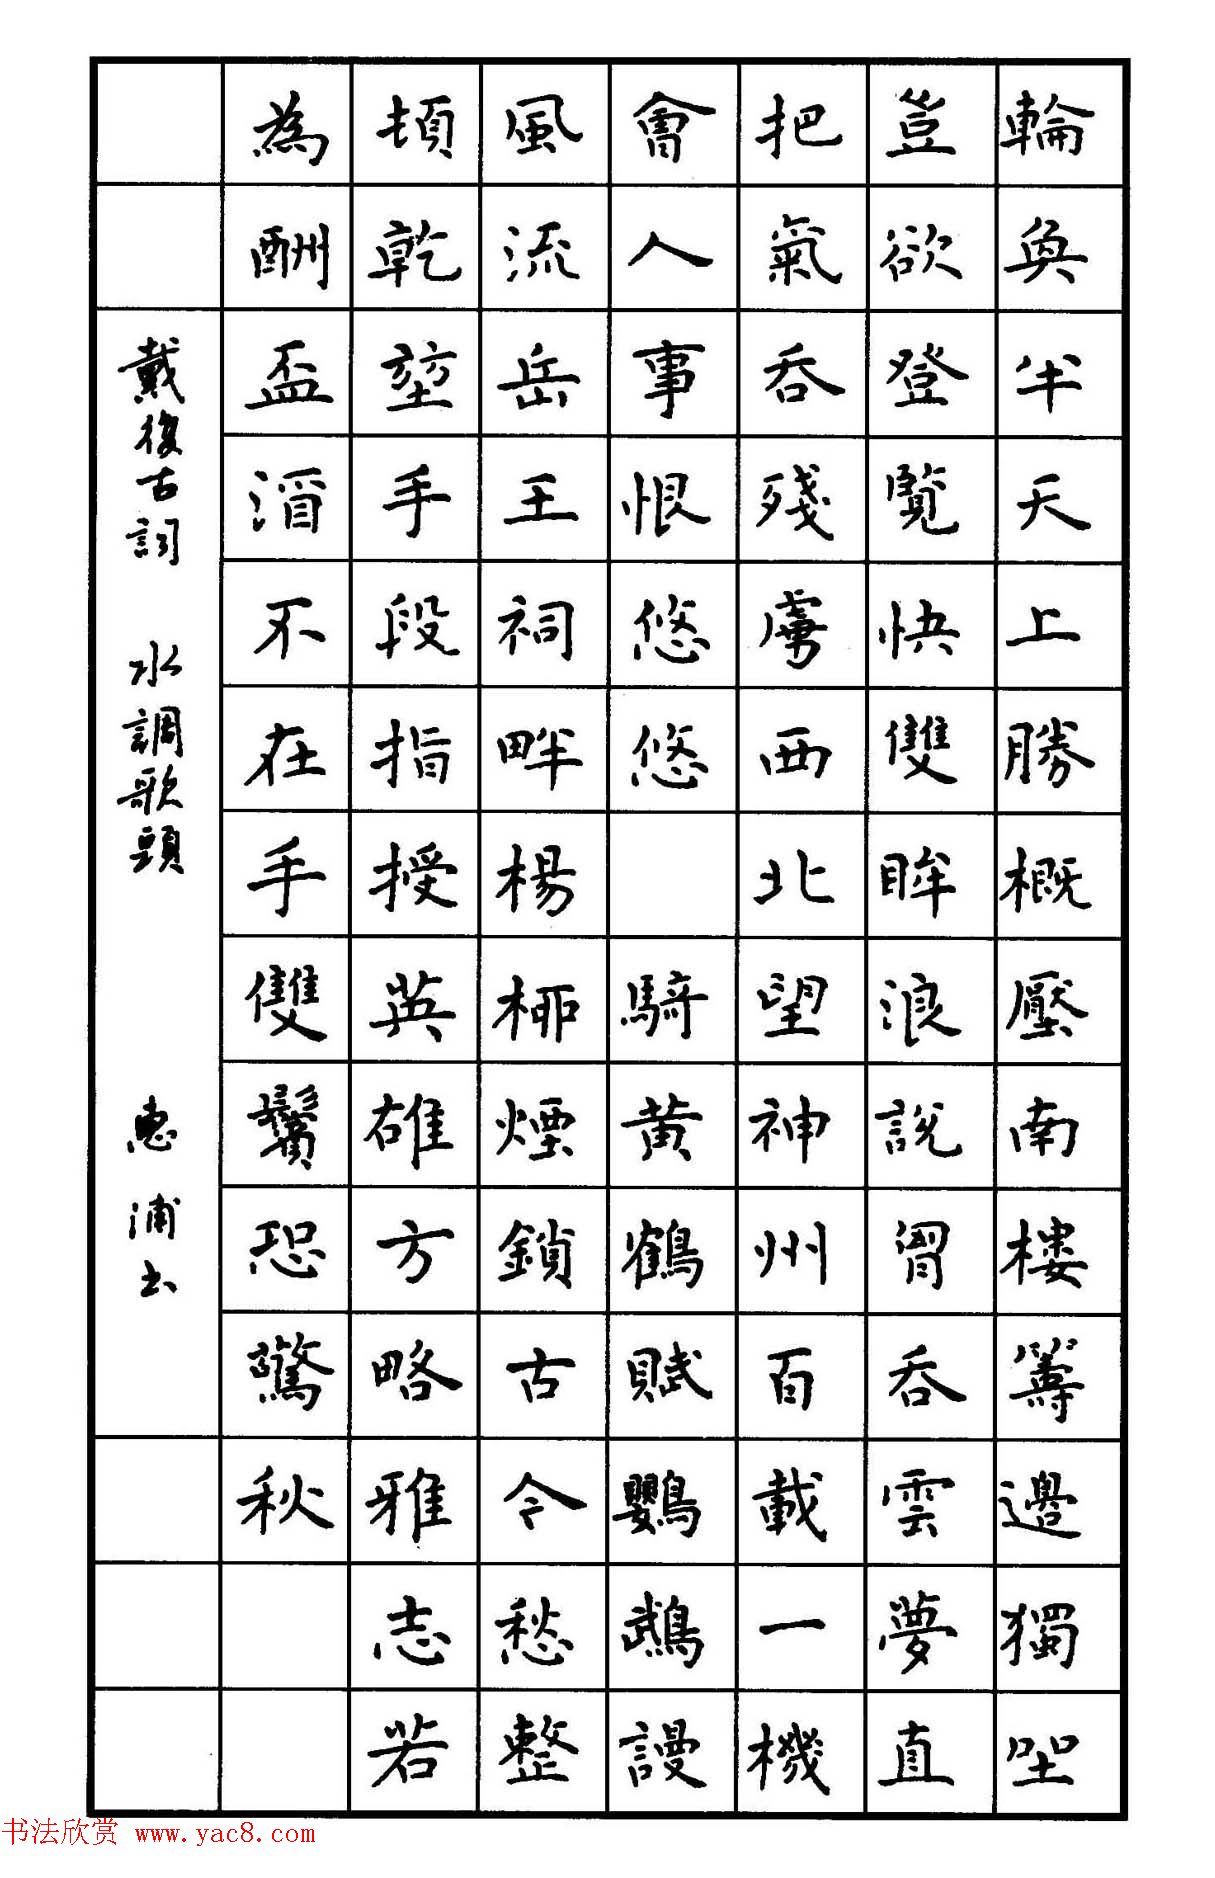 輪奐半天上勝概壓南樓籌邊獨坐
豈欲登覽快雙眸浪說胷吞雲夢直
把氣吞殘虜西北望神州百載一機
會人事恨悠悠 騎黃鶴賦鸚鵡謾
風流岳王祠畔楊柳煙鎖古今愁整
頓乾堃手段指授英雄方略雅志若
為酬盃酒不在手雙鬢恐驚秋
戴復古詞 水調歌頭 惠浦书
书法欣赏 www.yac8.com